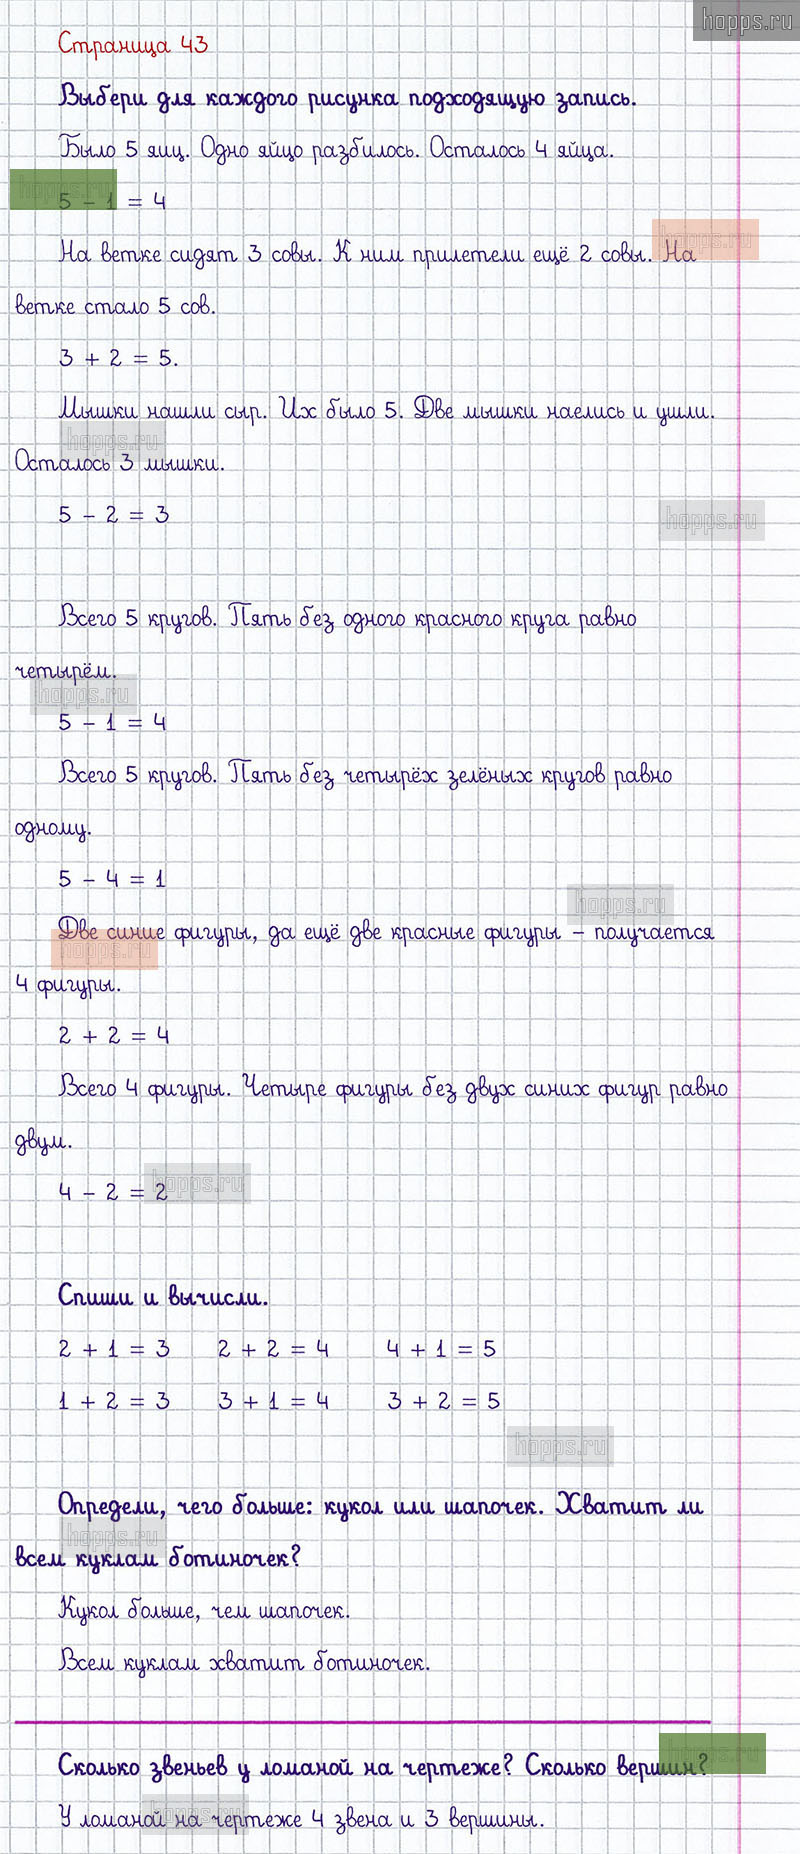 hopps.ru
Страница 43
Выбери для каждого рисунка подходящую запись.
Было 5 яиц. Одно яйцо разбилось. Осталось 4 яйца.
hopps.ru
5 - 1 = 4
hopps.ru
На ветке сидят 3 совы. К ним прилетели ещё 2 совы. На
ветке стало 5 сов.
3 + 2 = 5.
Мышки нашли сыр. Их было 5. Две мышки наелись и ушли.
hopps.ru
Осталось 3 мышки.
5 - 2 = 3
hopps.ru
Всего 5 кругов. Пять без одного красного круга равно
четырём.
hopps.ru
5 - 1 = 4
Всего 5 кругов. Пять без четырёх зелёных кругов равно
одному.
5 - 4 = 1
hopps.ru
Две синие фигуры, да ещё две красные фигуры – получается
hopps.ru
4 фигуры.
2 + 2 = 4
Всего 4 фигуры. Четыре фигуры без двух синих фигур равно
двум.
4 - 2 = 2
hopps.ru
Спиши и вычисли.
2 + 1 = 3 2 + 2 = 4 4 + 1 = 5
1 + 2 = 3 3 + 1 = 4 3 + 2 = 5
hopps.ru
Определи, чего больше: кукол или шапочек. Хватит ли
hopps.ru
всем куклам ботиночек?
Кукол больше, чем шапочек.
Всем куклам хватит ботиночек.
hopps.ru
Сколько звеньев у ломаной на чертеже? Сколько вершин?
hopps.ru
У ломаной на чертеже 4 звена и 3 вершины.